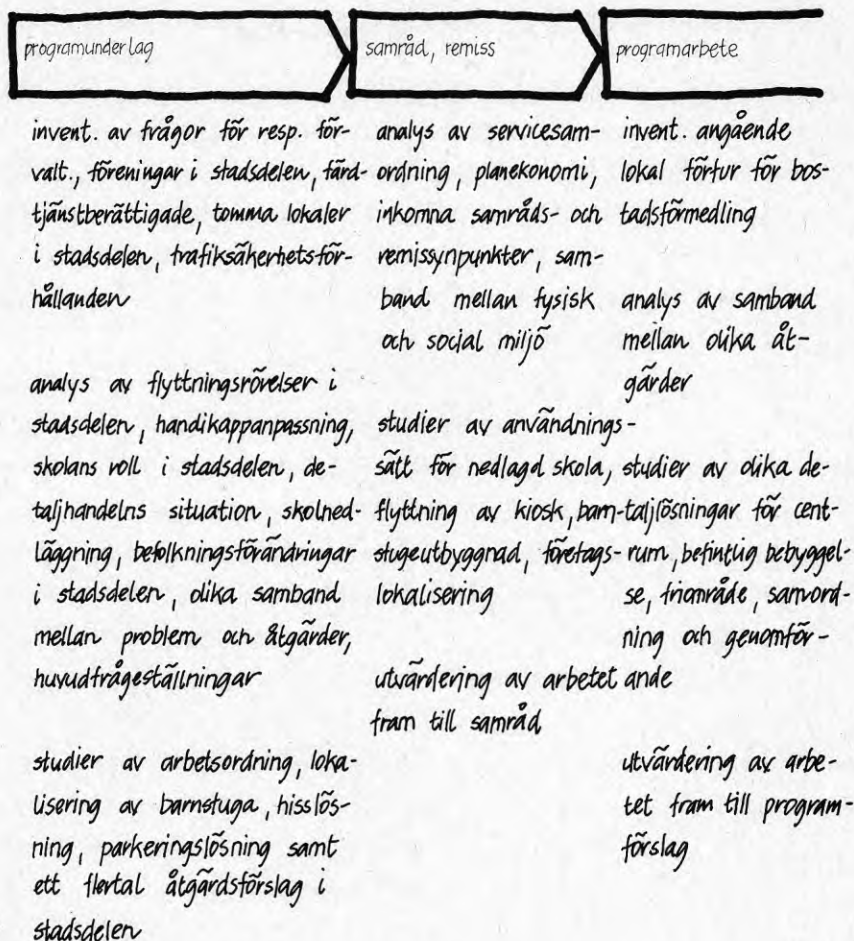 programunderlag
invent. av frågor för resp. för-
valt., föreningar i stadsdelen, färd-
tjänstberättigade, tomma lokaler
i stadsdelen, trafiksäkerhetsför-
hållanden
analys av flyttningsrörelser i
stadsdelen, handikappanpassning,
skolans roll i stadsdelen, de-
taljhandelns situation, skolned-
läggning, befolkningsförändringar
i stadsdelen, olika samband
mellan problem och åtgärder,
huvudfrågeställningar
studier av arbetsordning, loka-
lisering av barnstuga, hisslös-
ning, parkeringslösning samt
ett flertal åtgärdsförslag i
stadsdelen
samråd, remiss
analys av servicesam-
ordning, planekonomi,
inkomna samråds- och
remissynpunkter, sam-
band mellan fysisk
och social miljö
studier av användnings-
sätt för nedlagd skola,
flyttning av kiosk, barn-
stugeutbyggnad, företags-
lokalisering
utvärdering av arbetet
fram till samråd
programarbete
invent. angående
lokal förtur för bos-
tadsförmedling
analys av samband
mellan olika åt-
gärder
studier av olika de-
taljlösningar för cent-
rum, befintlig bebyggel-
se, friområde, samord-
ning och genomför-
ande
utvärdering av arbe-
tet fram till program-
förslag